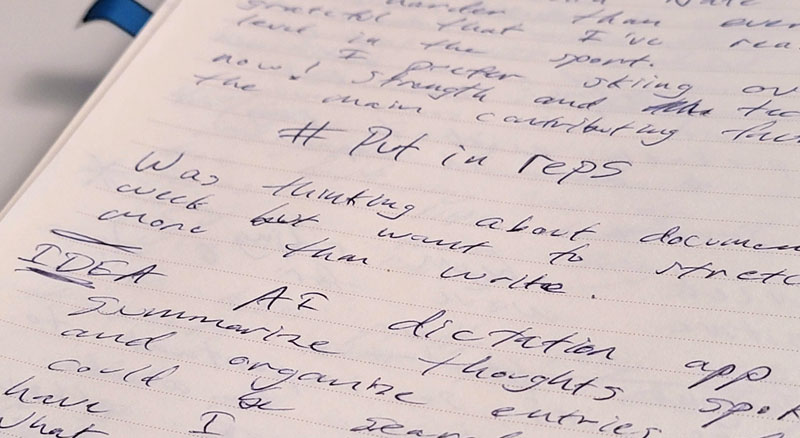 harder than ever
grateful that I've
level in the sport.
I prefer skiing
now, strength and
the main contributing
# Put in reps
Was thinking about
week but want to
more than write.
IDEA AI dictation app
summarize thoughts
and organize entries
could be
have I
what